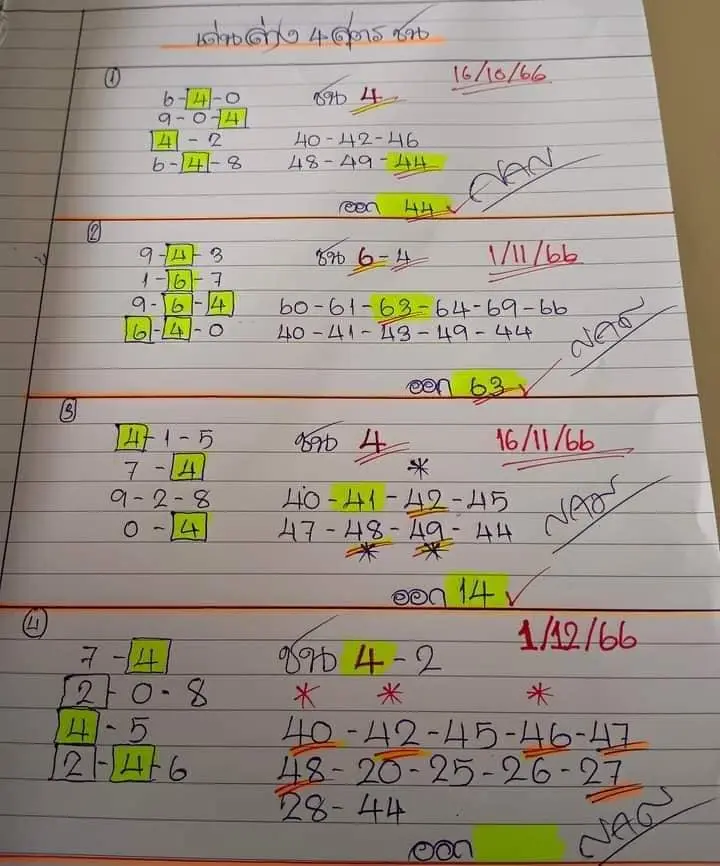 เด่นล่าง 4 สูตร ชน
1
16/10/66
6-4-0 ชน 4
9-0-4
4-2 40-42-46
6-4-8 48-49-44
ออก 44
2
9-4-3 ชน 6-4 1/11/66
1-6-7
9-6-4 60-61-63-64-69-66
6-4-0 40-41-43-49-44
ออก 63
3
4-1-5 ชน 4 16/11/66
7-4 *
9-2-8 40-41-42-45
0-4 47-48-49-44
* *
ออก 14
4
1/12/66
7-4 ชน 4-2
2-0-8 * * *
4-5 40-42-45-46-47
2-4-6 48-20-25-26-27
28-44
ออก